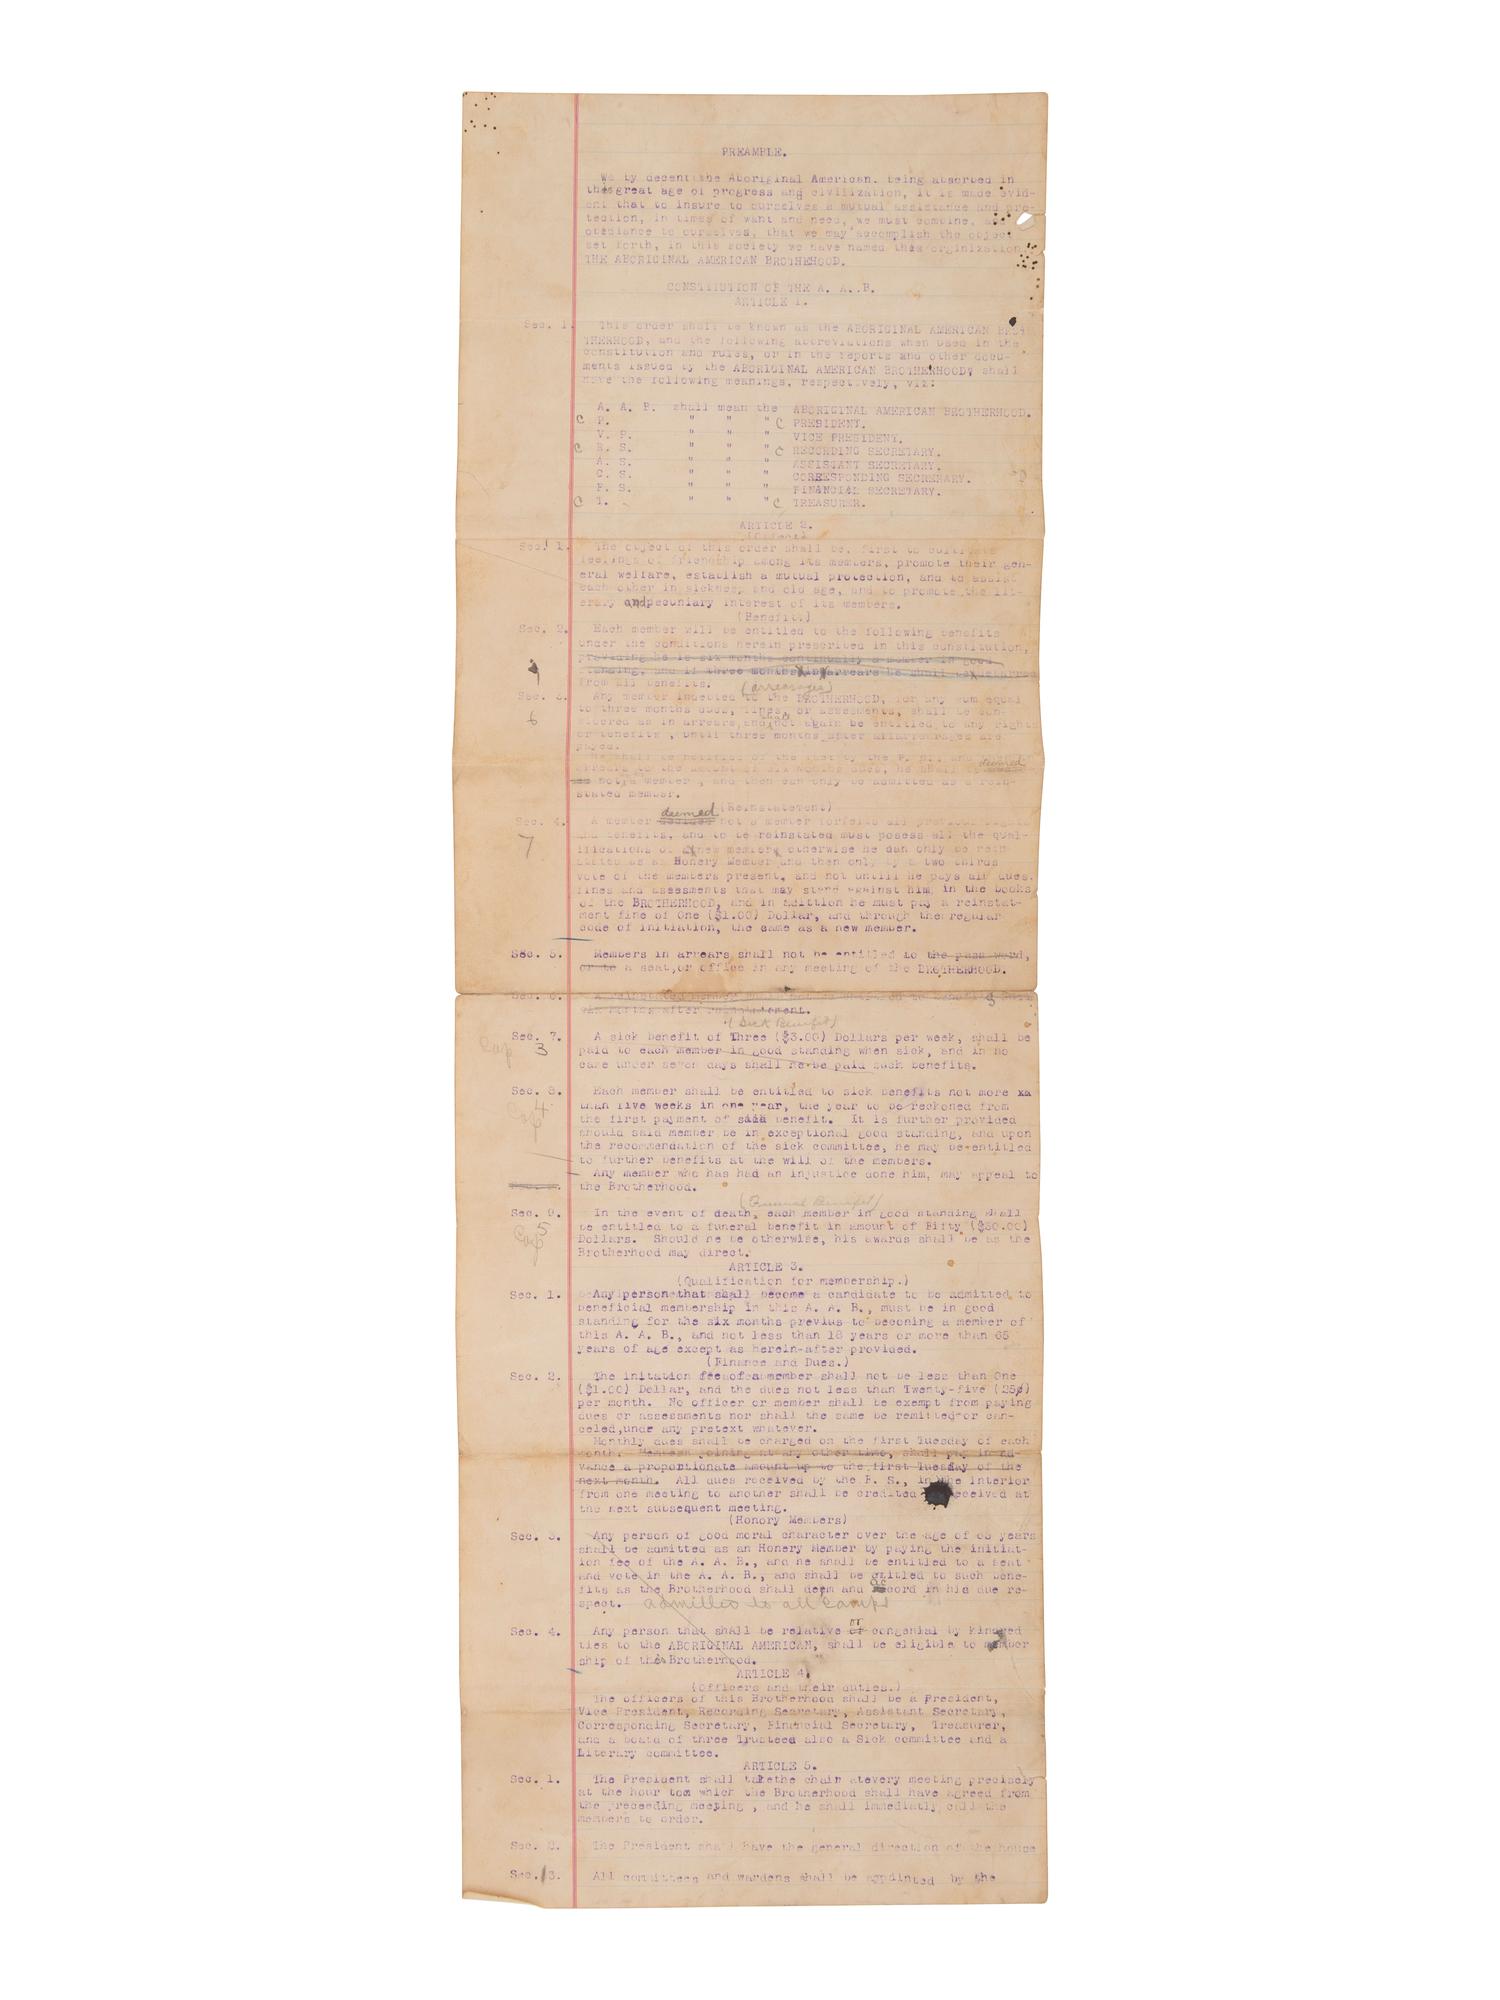 PREAMBLE.
We by decent the Aboriginal American. being absorbed in
this great age of progress and civilization, it is made evid-
ent that to insure to ourselves a mutual assistance and pro-
tection, in times of want and need, we must combine, and
obediance to ourselves, that we may accomplish the object
set forth, in this society we have named this orginization,
THE ABORIGINAL AMERICAN BROTHEHOOD.
CONSTITUTION OF THE A. A. B.
ARTICLE 1.
Sec. 1. This order shall be known as the ABORIGINAL AMERICAN BRO-
THERHOOD, and the following abbreviations when used in the
constitution and rules, or in the reports and other docu-
ments issued by the ABORIGINAL AMERICAN BROTHERHOOD, shall
have the following meanings, respectively, viz:
A. A. B. shall mean the ABORIGINAL AMERICAN BROTHERHOOD.
C P. " " " C PRESIDENT.
V. P. " " " VICE PRESIDENT.
C R. S. " " " C RECORDING SECRETARY.
A. S. " " " ASSISTANT SECRETARY.
C. S. " " " CORESSPONDING SECRERARY.
F. S. " " " FINANCIAL SECRETARY.
C T. " " " C TREASURER.
ARTICLE 2.
Sec. 1. The object of this order shall be, first to cultivate
feelings of friendship among its members, promote their gen-
eral welfare, establish a mutual protection, and to assist
each other in sicknes, and old age, and to promote the lit-
erary and pecuniary interest of its members.
(Benefits)
Sec. 2. Each member will be entitled to the following benefits
under the conditions herein prescribed in this constitution,
providing he is six months continually a member in good
standing, and if three months in arrears he shall be debarred
from all benefits. (arrearages)
Sec. 3. Any member indebted to the BROTHERHOOD, for any sum equal
6 to three months dues, fines, or assesments, shall be con-
sidered as in arrears, and shall not again be entitled to any rights
or benefits , until three months after all arrearages are
payed.
He shall be notified of the fact by the F. S., and
arrears to the amount of six months dues, he shall deemed
not a member , and then can only be admitted as a rein-
stated member.
(Reinstatement)
Sec. 4. A member deemed not a member forfeits all previous rights
7 and benefits, and to be reinstated must posess all the qual-
ifications of a new member, otherwise he can only be rein-
stated as an Honery Member and then only by a two thirds
vote of the members present, and not untill he pays all dues,
fines and assesments that may stand against him, in the books
of the BROTHERHOOD, and in adittion he must pay a reinstat-
ment fine of One ($1.00) Dollar, and through the regular
code of initiation, the same as a new member.
Sec. 5. Members in arrears shall not be entitled to the pass word,
or to a seat, or office in any meeting of the BROTHERHOOD.
Sec. 6. A reinstated member shall not be entitled to benefits
six months after reinstatement.
(Sick Benefit)
Sec. 7. A sick benefit of Three ($3.00) Dollars per week, shall be
3 paid to each member in good standing when sick, and in no
case under seven days shall he be paid such benefits.
Sec. 8. Each member shall be entitled to sick benefits not more
4 than five weeks in one year, the year to be reckoned from
the first payment of said benefit. It is further provided
should said member be in exceptional good standing, and upon
the recommendation of the sick committee, he may be entitled
to further benefits at the will of the members.
Any member who has had an injustice done him, may appeal to
the Brotherhood.
(Funeral Benefit)
Sec. 9. In the event of death, each member in good standing shall
5 be entitled to a funeral benefit in amount of Fifty ($50.00)
Dollars. Should he be otherwise, his awards shall be as the
Brotherhood may direct.
ARTICLE 3.
(Qualification for membership.)
Sec. 1. Any person that shall become a candidate to be admitted to
beneficial membership in this A. A. B., must be in good
standing for the six months previus to becoming a member of
this A. A. B., and not less than 18 years or more than 65
years of age except as herein-after provided.
(Finance and Dues.)
Sec. 2. The initation fee of a member shall not be less than One
($1.00) Dollar, and the dues not less than Twenty-five (25¢)
per month. No officer or member shall be exempt from paying
dues or assessments nor shall the same be remitted or can-
celed, undr any pretext whatever.
Monthly dues shall be charged on the first Tuesday of each
month. Members joining at any other time, shall pay in ad-
vance a proportionate amount up to the first Tuesday of the
next month. All dues received by the F. S., in the interior
from one meeting to another shall be credited received at
the next subsequent meeting.
(Honory Members)
Sec. 3. Any person of good moral character over the age of 65 years
shall be admitted as an Honery Member by paying the initiat-
ion fee of the A. A. B., and he shall be entitled to a seat
and vote in the A. A. B., and shall be entitled to such bene-
fits as the Brotherhood shall deem and accord in his due re-
spect. admitted to all Camps
Sec. 4. Any person that shall be relative or congenial by kindred
ties to the ABORIGINAL AMERICAN, shall be eligible to member
ship of the Brotherhood.
ARTICLE 4.
(Officers and their duties.)
The officers of this Brotherhood shall be a President,
Vice President, Recording Secretary, Assistant Secretary,
Corresponding Secretary, Financial Secretary, Treasurer,
and a board of three Trusteed also a Sick committee and a
Literary committee.
ARTICLE 5.
Sec. 1. The President shall take the chair at every meeting precisely
at the hour to which the Brotherhood shall have agreed from
the preceeding meeting , and he shall immediatly call the
members to order.
Sec. 2. The President shall have the general direction of the house
Sec. 3. All committees and wardens shall be appointed by the